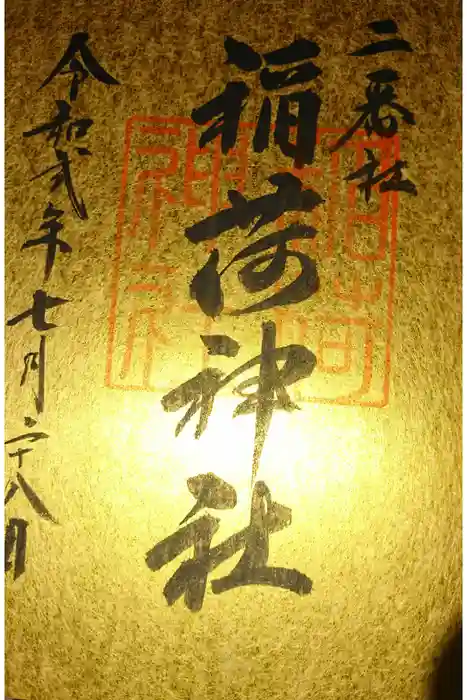 二番社
稲荷神社
令和弐年七月二十八日